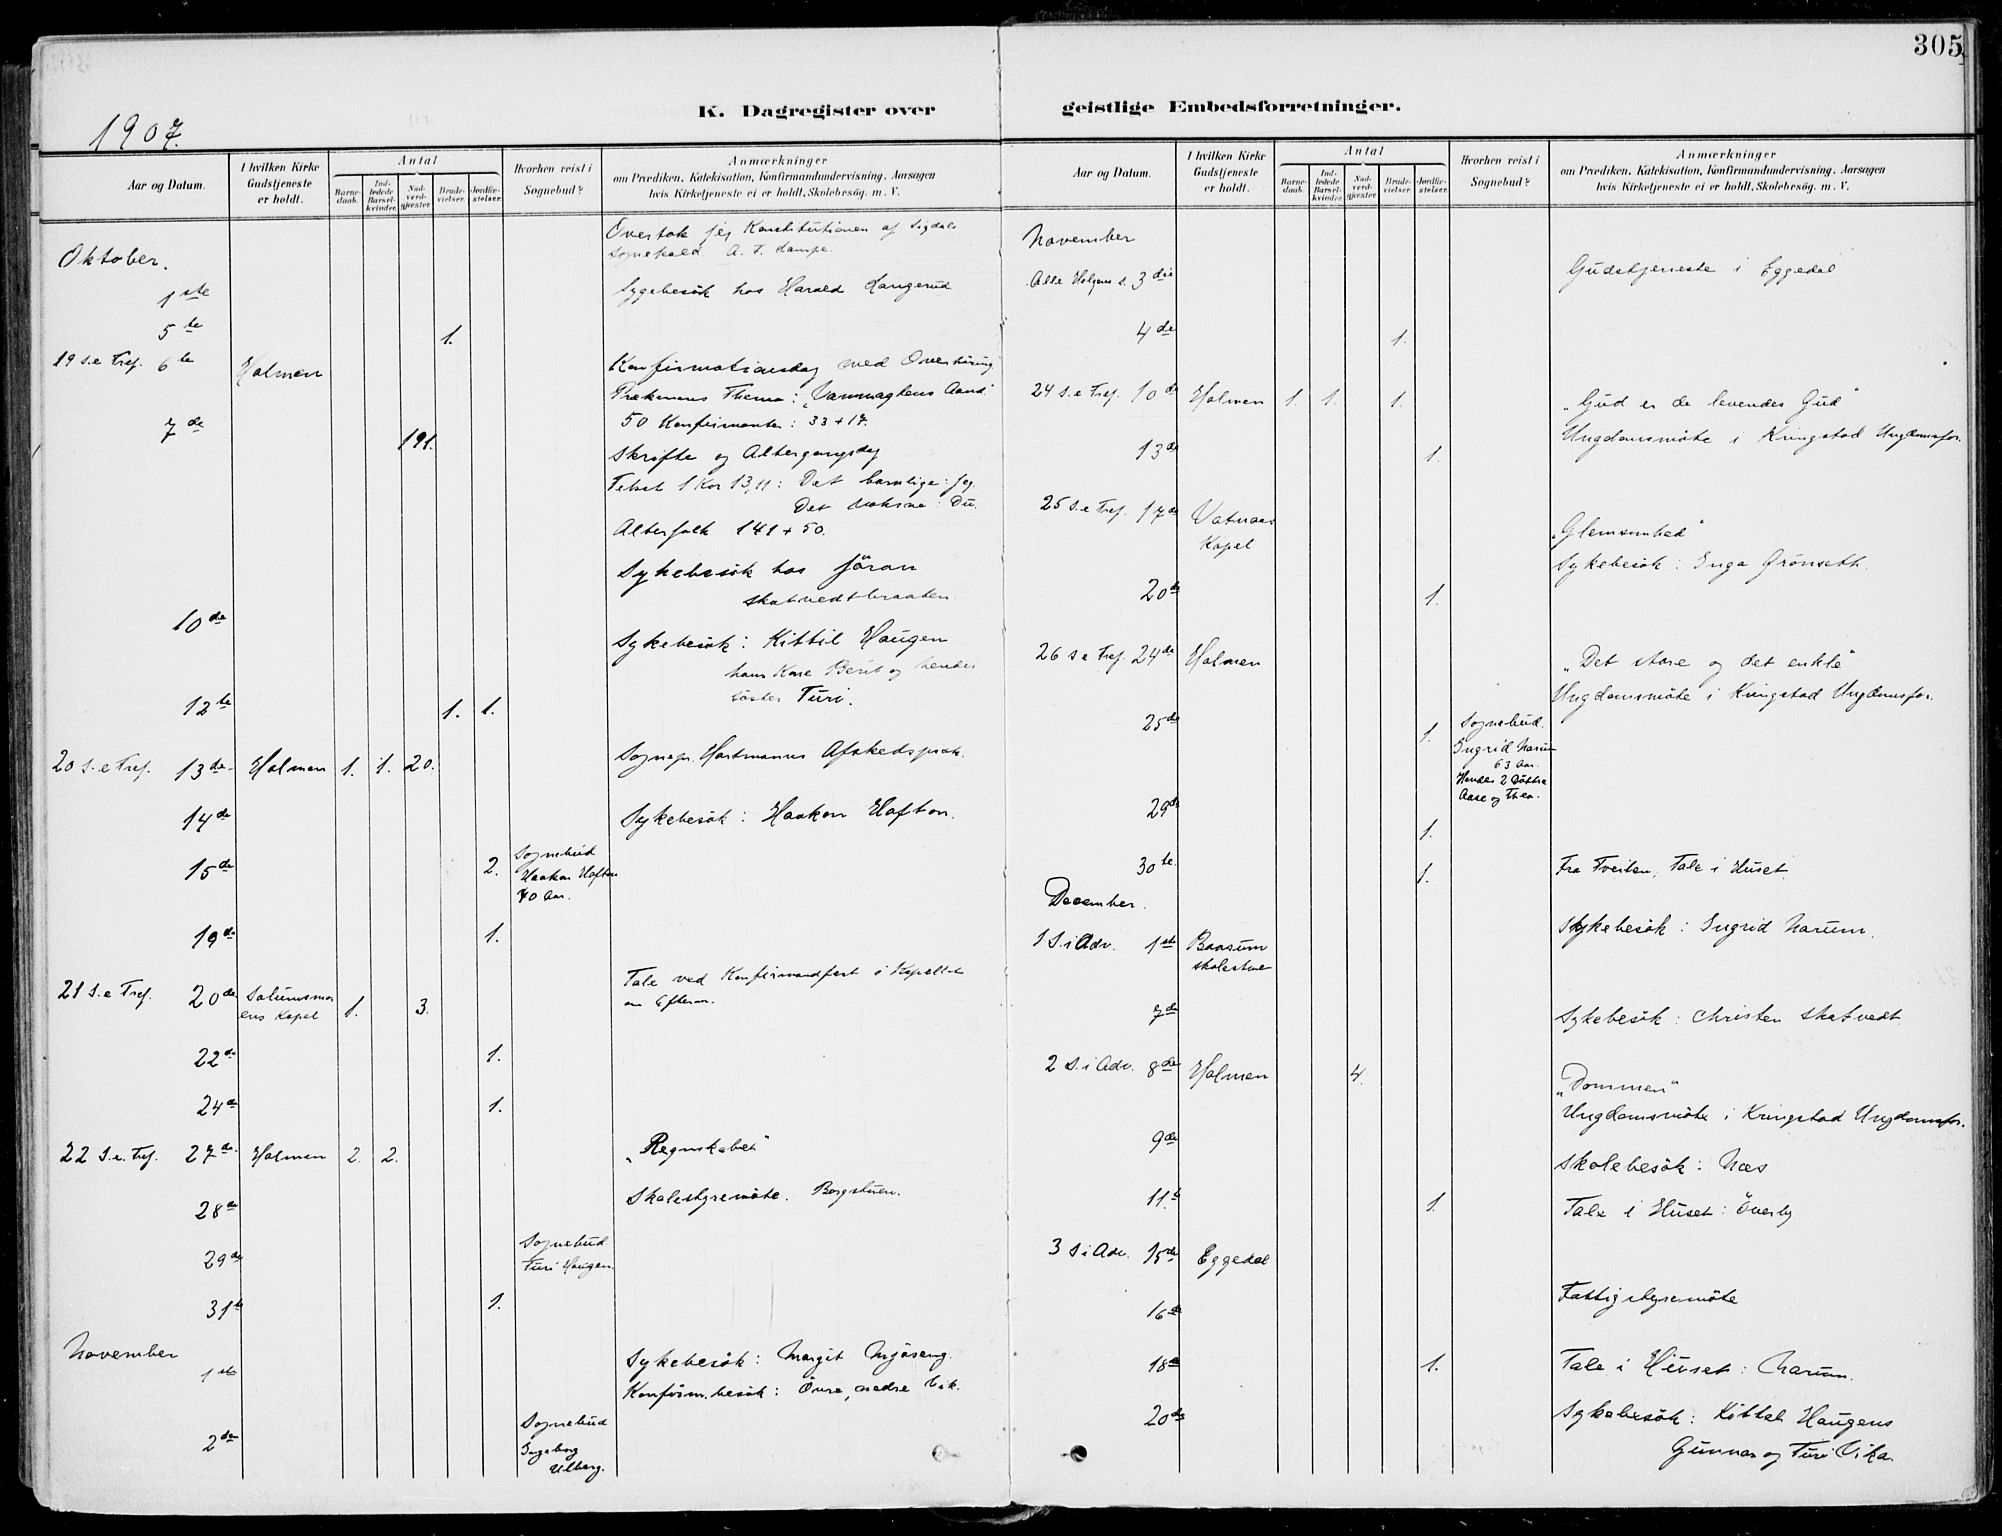 305
K. Dagregister over geistlige Embedsforretninger.
1907.
Aar og Datum. I hvilken Kirke Gudstjeneste er holdt. Antal Barnedaab. Indledede Barselkvinder. Nadverdgjester. Brudevielser. Jordfæstelser. Hvorhen reist i Sognebud? Anmærkninger om Prædiken, Katekisation, Konfirmandundervisning, Aarsagen hvis Kirketjeneste ei er holdt, Skolebesøg. m. V.
Overtok jeg Konstitutionen af Sigdals
Sognekald. A. F. Lampe.
Oktober.
1ste Sygebesök hos Harald Langerud
5te 1.
19 S. e Tref. 6te Holmen Konfirmationsdag med Overhöring
Prækenens Thema: „Vanmagtens Aand"
50 Konfirmanter: 33 + 17.
7de 191. Skrifte og Altergangsdag
Tekst 1 Kor 13,11: Det barnlige: Jeg.
Det voksne: Du.
Alterfolk 141 + 50.
Sykebesök hos Jöran
Skatvedtbraaten.
10de Sykebesök: Kittil Haugen
hans Kone Berit og hendes
söster Turi.
12te 1. 1.
20 S. e Tref. 13de Holmen 1. 1. 20. Sognepr. Hartmanns Afskedspræk.
14de Sykebesök: Haakon Hafton.
15de 2. Sognebud
Haakon Hafton
70 Aar.
19de 1.
21 S. e Tref. 20de Solumsmoens Kapel 1. 3. Tale ved Konfirmandfest i Kapellet
om Efterm.
22de 1.
24de 1.
22 S. e. Tref. 27de Holmen 2. 2. „Regnskabet"
28de Skolestyremöte. Borgstuen.
29de Sognebud
Turi Haugen.
31te 1.
November
1ste Sykebesök: Margit Mjöseng.
Konfirm.besök: Övre, nedre Vik.
2den Sognebud
Ingeborg
Ulberg.
Aar og Datum. I hvilken Kirke Gudstjeneste er holdt. Antal Barnedaab. Indledede Barselkvinder. Nadverdgjester. Brudevielser. Jordfæstelser. Hvorhen reist i Sognebud? Anmærkninger om Prædiken, Katekisation, Konfirmandundervisning, Aarsagen hvis Kirketjeneste ei er holdt, Skolebesøg. m. V.
November
Alle Helgens s. 3die Gudstjeneste i Eggedal
4de 1.
24 S. e Tref. 10de Holmen 1. 1. 1. „Gud er de levendes Gud"
Ungdomsmöte i Kringstad Ungdomsfor.
13de 1.
25 S. e Tref. 17de Vatnaas
Kapel „Glemsomhed"
Sykebesök: Inga Grönseth.
20de 1.
26 S e Tref. 24de Holmen „Det store og det enkle"
Ungdomsmöte i Kringstad Ungdomsfor.
25de 1. Sognebud.
Ingrid Narum
63 Aar.
Hendes 2 Döttre
Aase og Thea.
29de 1.
30te. 1. Fra Tveiten, Tale i Huset.
December.
1 S. i Adv. 1ste Baasum
skolestue Sykebesök: Ingrid Narum.
7de Sykebesök: Christen Skatvedt
2 S. i Adv. 8de Holmen 4. „Dommen"
Ungdomsmöte i Kringstad Ungdomsfor.
9de Skolebesök: Næs
11te 1. Tale i Huset: Överby
3 S i Adv. 15de Eggedal
16de Fattigstyremöte
18de 1. Tale i Huset: Narum.
20de Sykebesök: Kittel Haugens
Gunnar og Turi Vika.